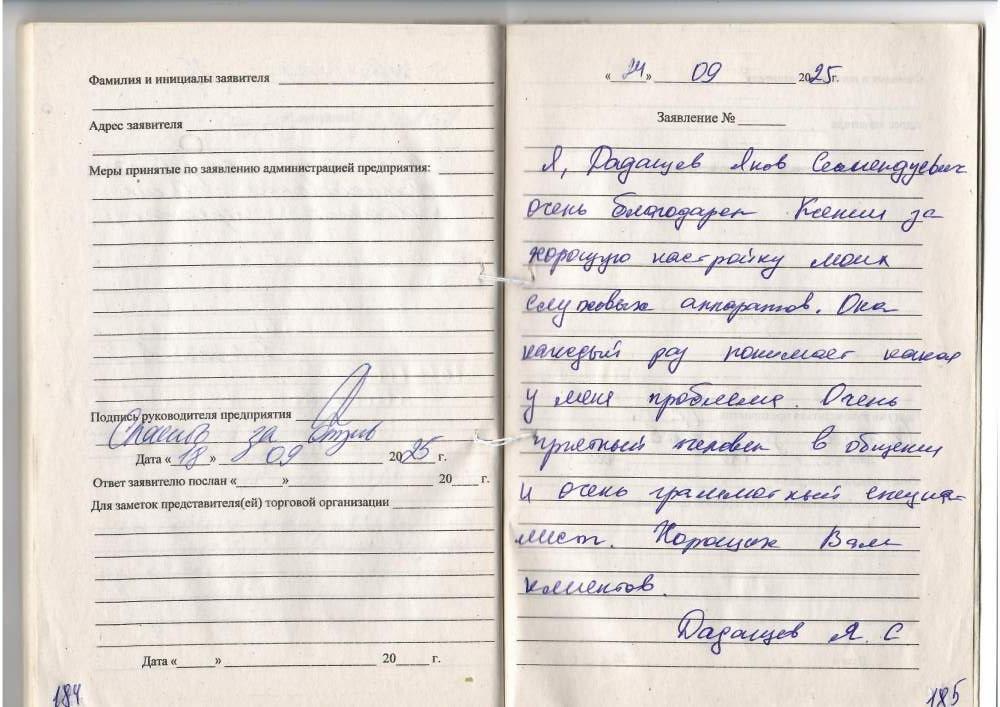 Фамилия и инициалы заявителя
Адрес заявителя
Меры принятые по заявлению администрацией предприятия:
Подпись руководителя предприятия
Спасибо за отзыв
Дата «18» 09 2025 г.
Ответ заявителю послан «______» 20____ г.
Для заметок представителя(ей) торговой организации
Дата «_____» 20_____ г.
184
«24» 09 2025г.
Заявление № _______
Я, Дадашев Яков Семендуевич
очень благодарен Ксении за
хорошую настройку моих
слуховых аппаратов. Она
каждый раз понимает какая
у меня проблема. Очень
приятный человек в общении
и очень грамотный специа-
лист. Хороших Вам
клиентов.
Дадашев Я. С
185